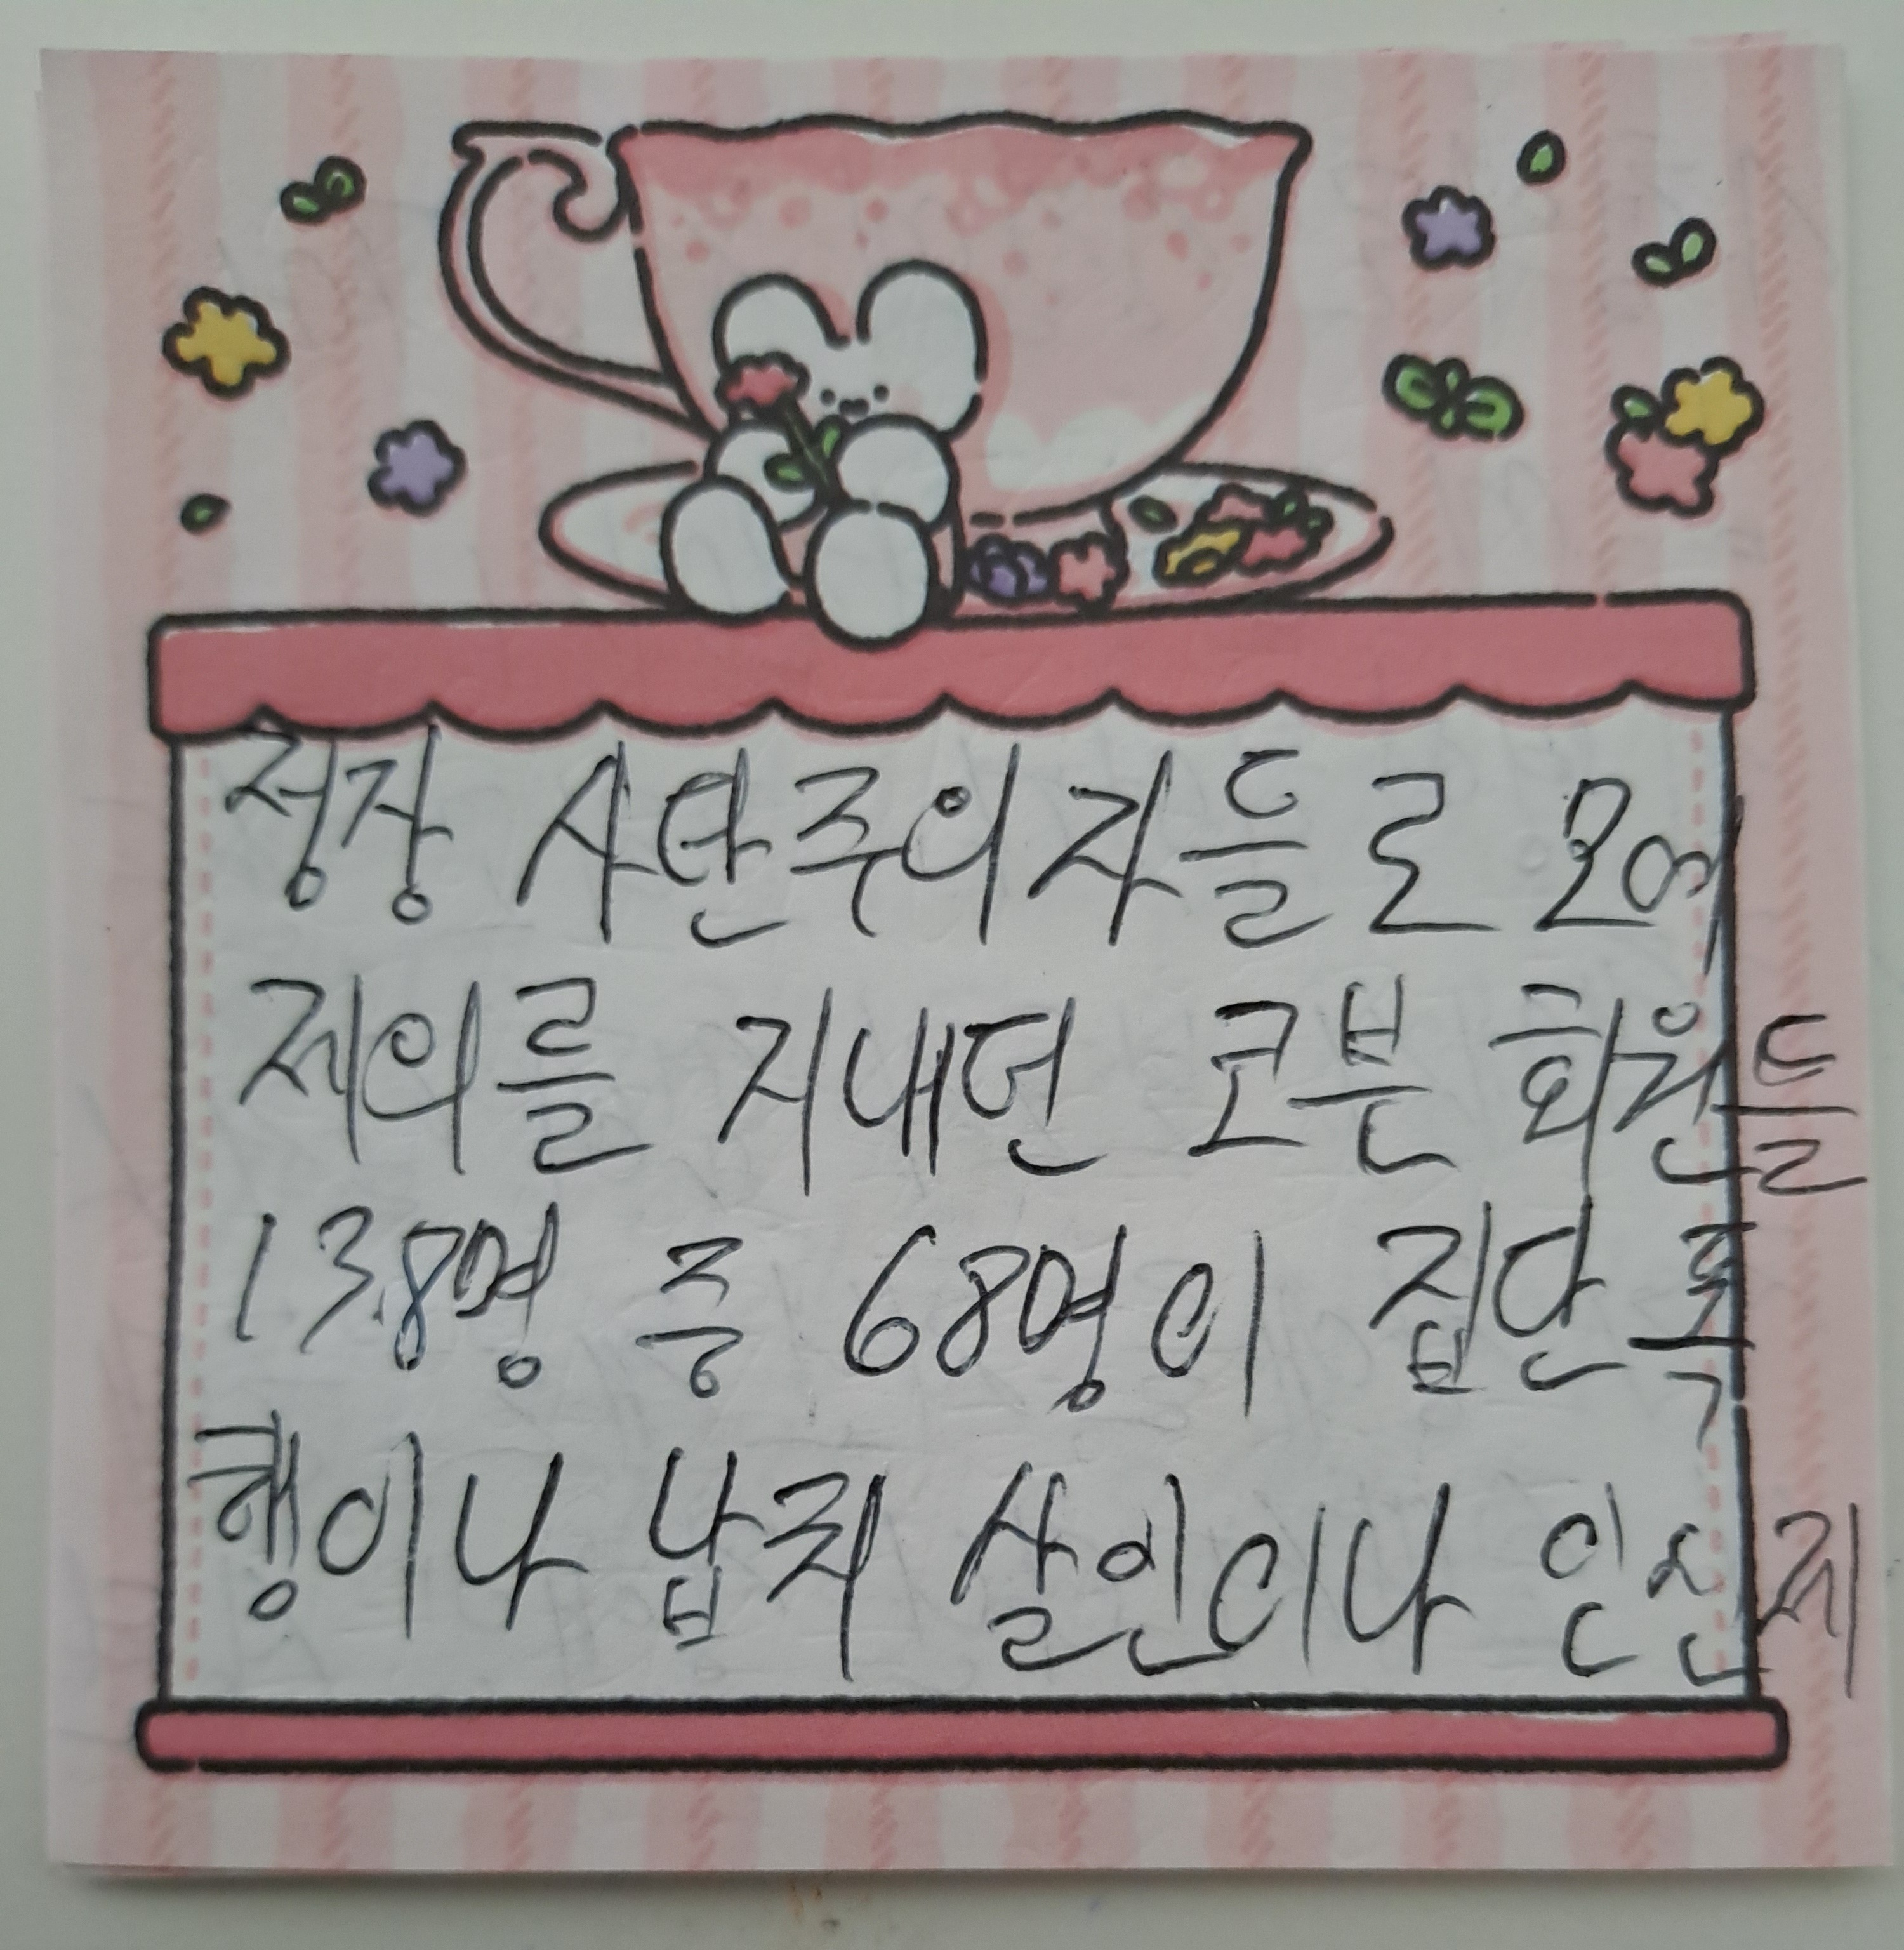 정장 사탄주의자들로 모여
제의를 지내던 코븐 회원들
138명 중 68명이 집단 폭
행이나 납치 살인이나 인신제